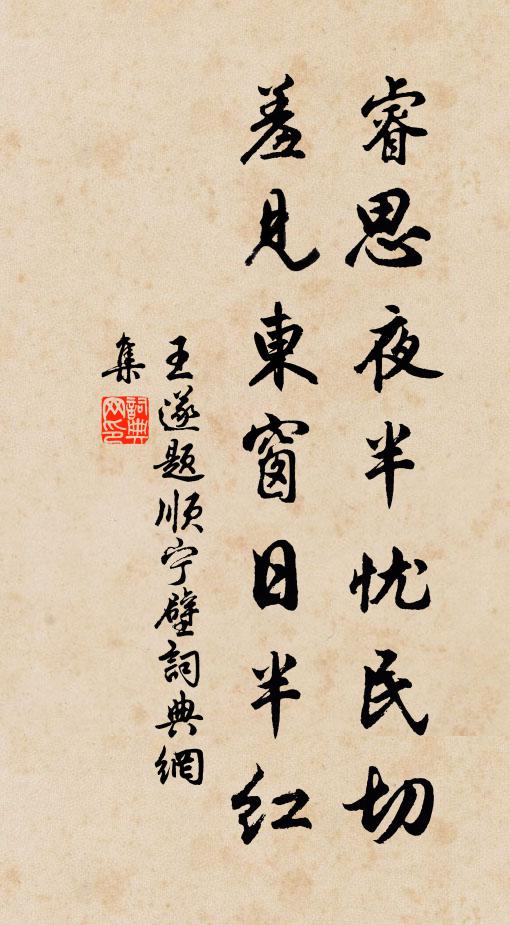 睿思夜半忧民切
羞見東窗日半紅
王遂題順宁壁詞典網
集
詞典网印